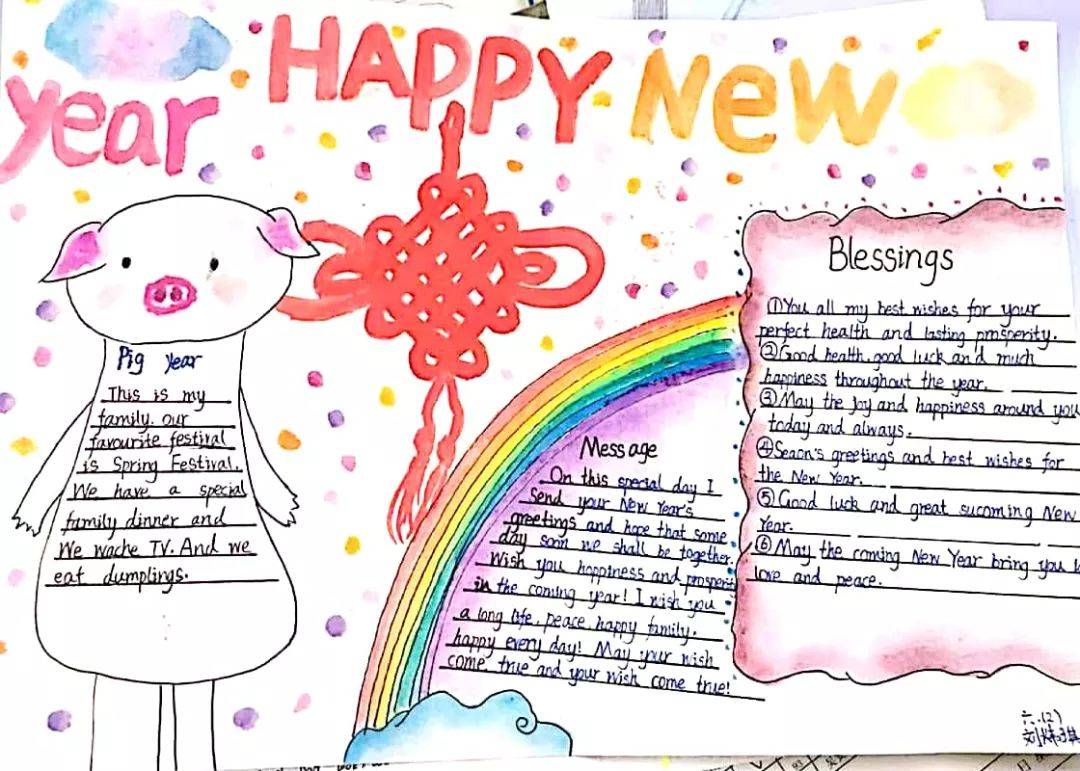 year
HAPPY New
Pig year
This is my
family. our
favourite festival
is Spring Festival.
We have a special
family dinner and
We wache TV. And we
eat dumplings.
Message
On this special day I
send your New Year's
greetings and hope that some
day soon we shall be together.
Wish you happiness and prosperi
in the coming year! I wish you
a long life, peace, happy family.
happy every day! May your wish
come true and your wish come true!
Blessings
①You all my best wishes for your
perfect health and lasting prosperity.
②Good health, good luck and much
happiness throughout the year.
③May the Joy and happiness around you
today and always.
④Seaon's greetings and best wishes for
the New Year.
⑤Good luck and great sucoming New
Year.
⑥May the coming New Year bring you
love and peace.
六.(2)